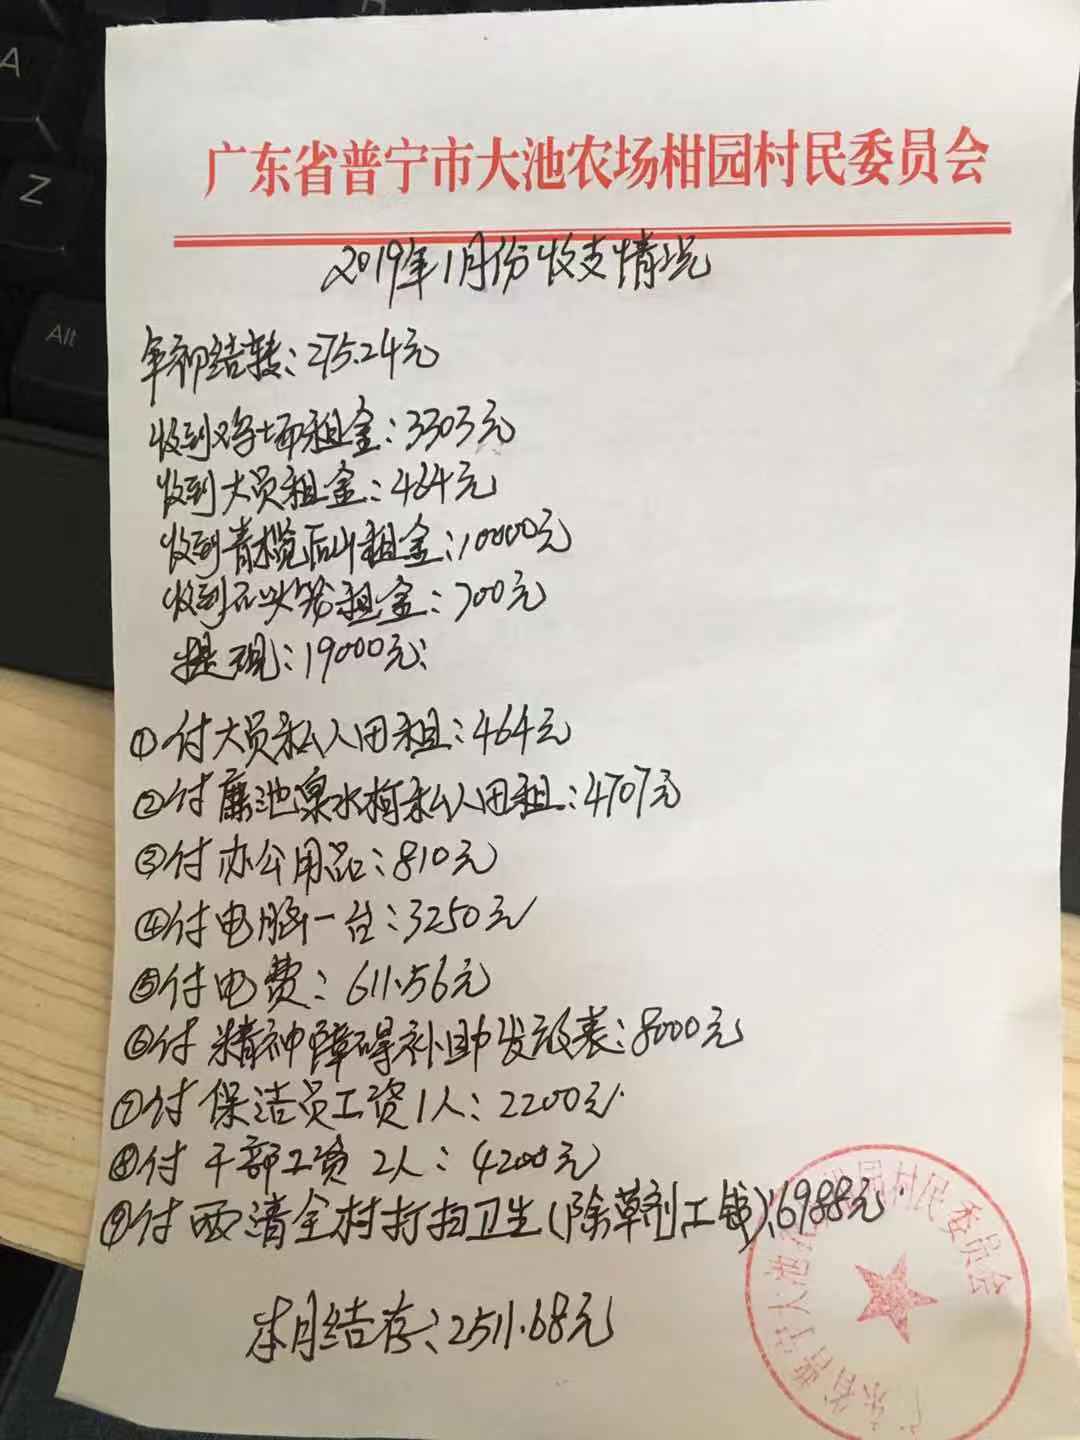 广东省普宁市大池农场柑园村民委员会
2019年1月份收支情况
年初结转:275.24元
收到鸡场租金:3303元
收到大员租金:464元
收到青榄后山租金:10000元
收到石头笼租金:700元
提现:19000元
①付大员私人田租:464元
②付廉池泉水柯私人田租:4707元
③付办公用品:810元
④付电脑一台:3250元
⑤付电费:611.56元
⑥付精神障碍补助发放表:8000元
⑦付保洁员工资1人:2200元
⑧付干部工资2人:4200元
⑨付西清全村打扫卫生(除草剂工钱):6988元
本月结存:2511.68元
广东省普宁市大池农场柑园村民委员会